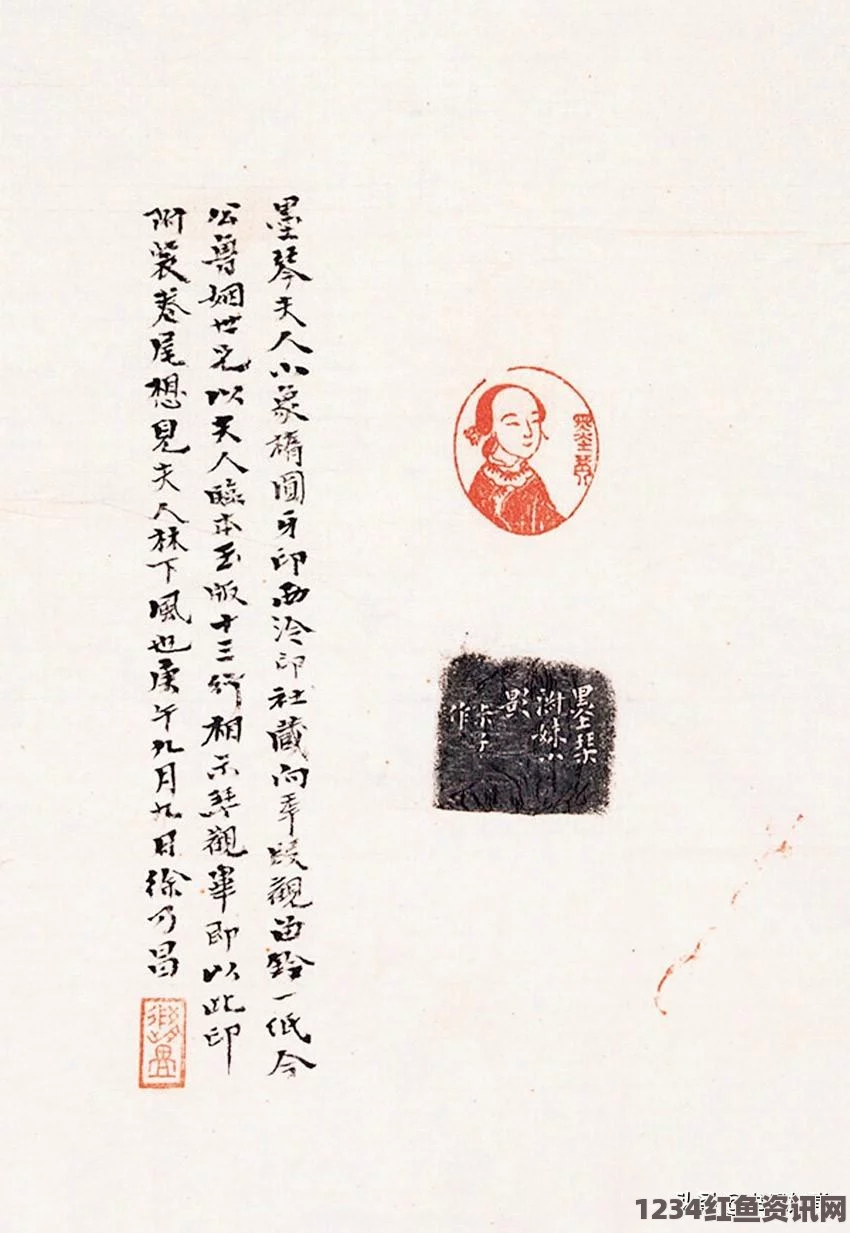 墨琴
墨琴
妹小
影
子
作
墨琴夫人小象橢圓牙印西泠印社藏向年觀留鈐一紙今
公魯姻世兄以夫人臨本玉版十三行相示觀畢即以此印
附裝卷尾想見夫人林下風也庚午九月九日徐乃昌
1234红鱼资讯网